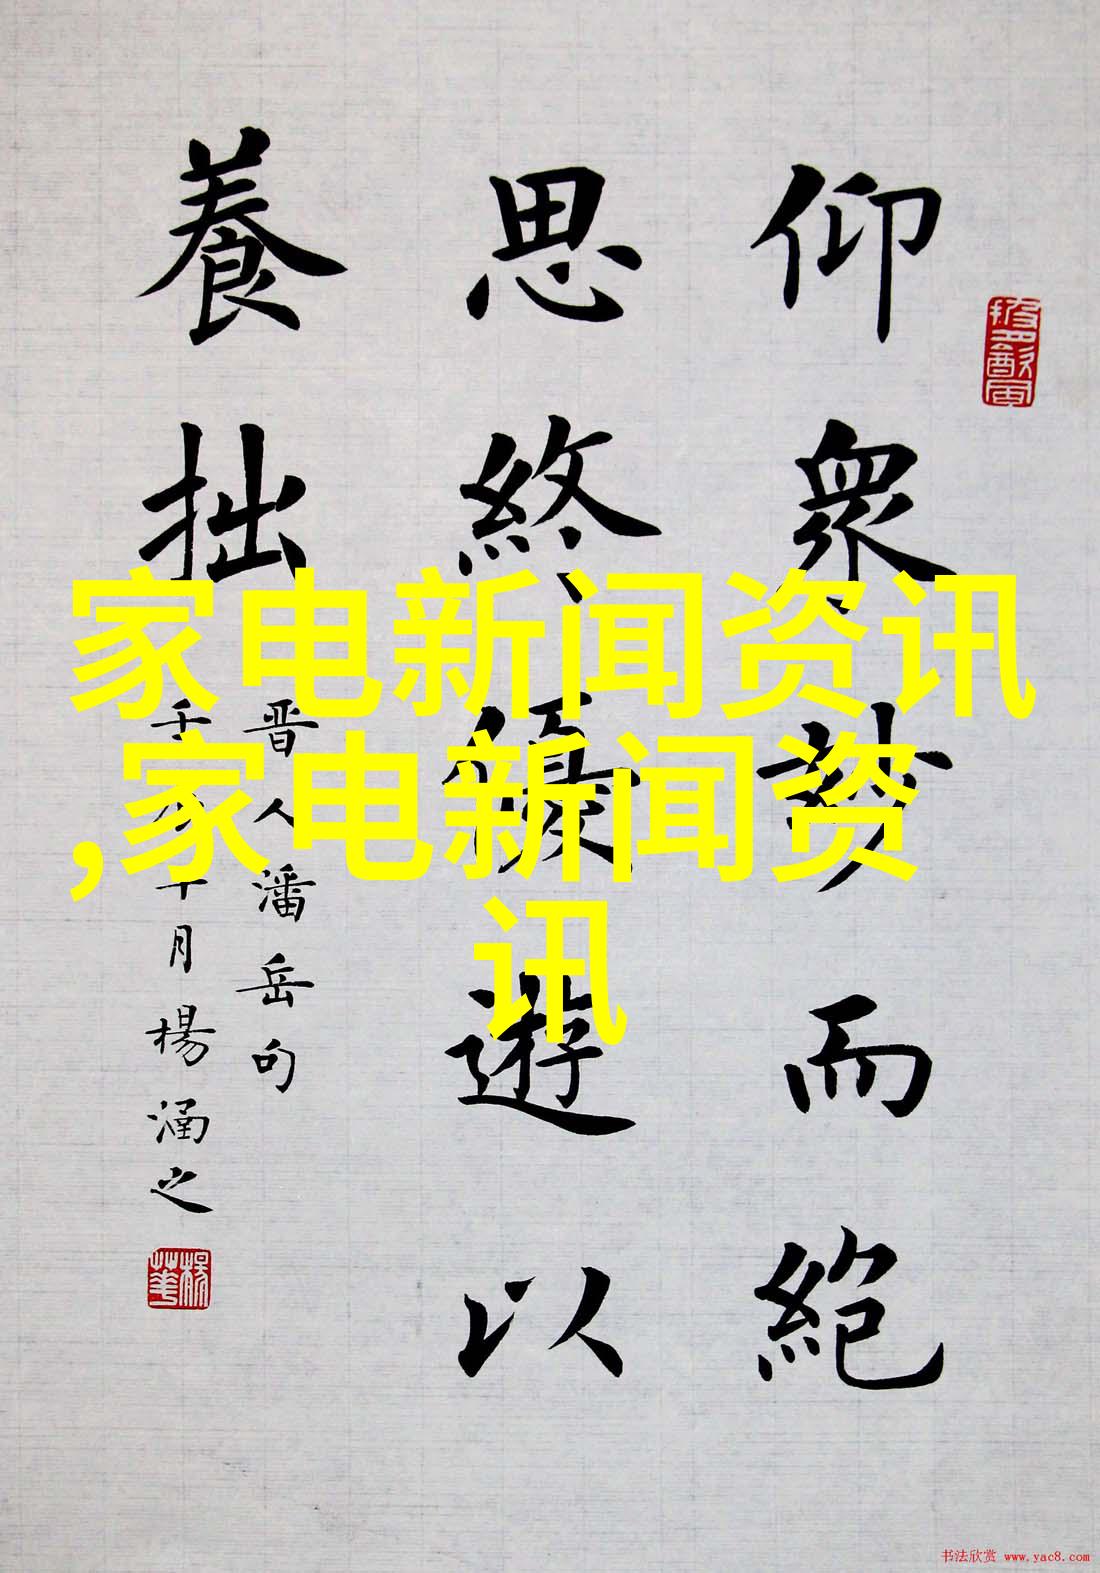 仰衆妙而絶
思終優遊以
養拙
晋人潘岳句
年月楊涵之
家电新闻资讯
,家电新闻资
讯
书法欣赏 www.yac8.com